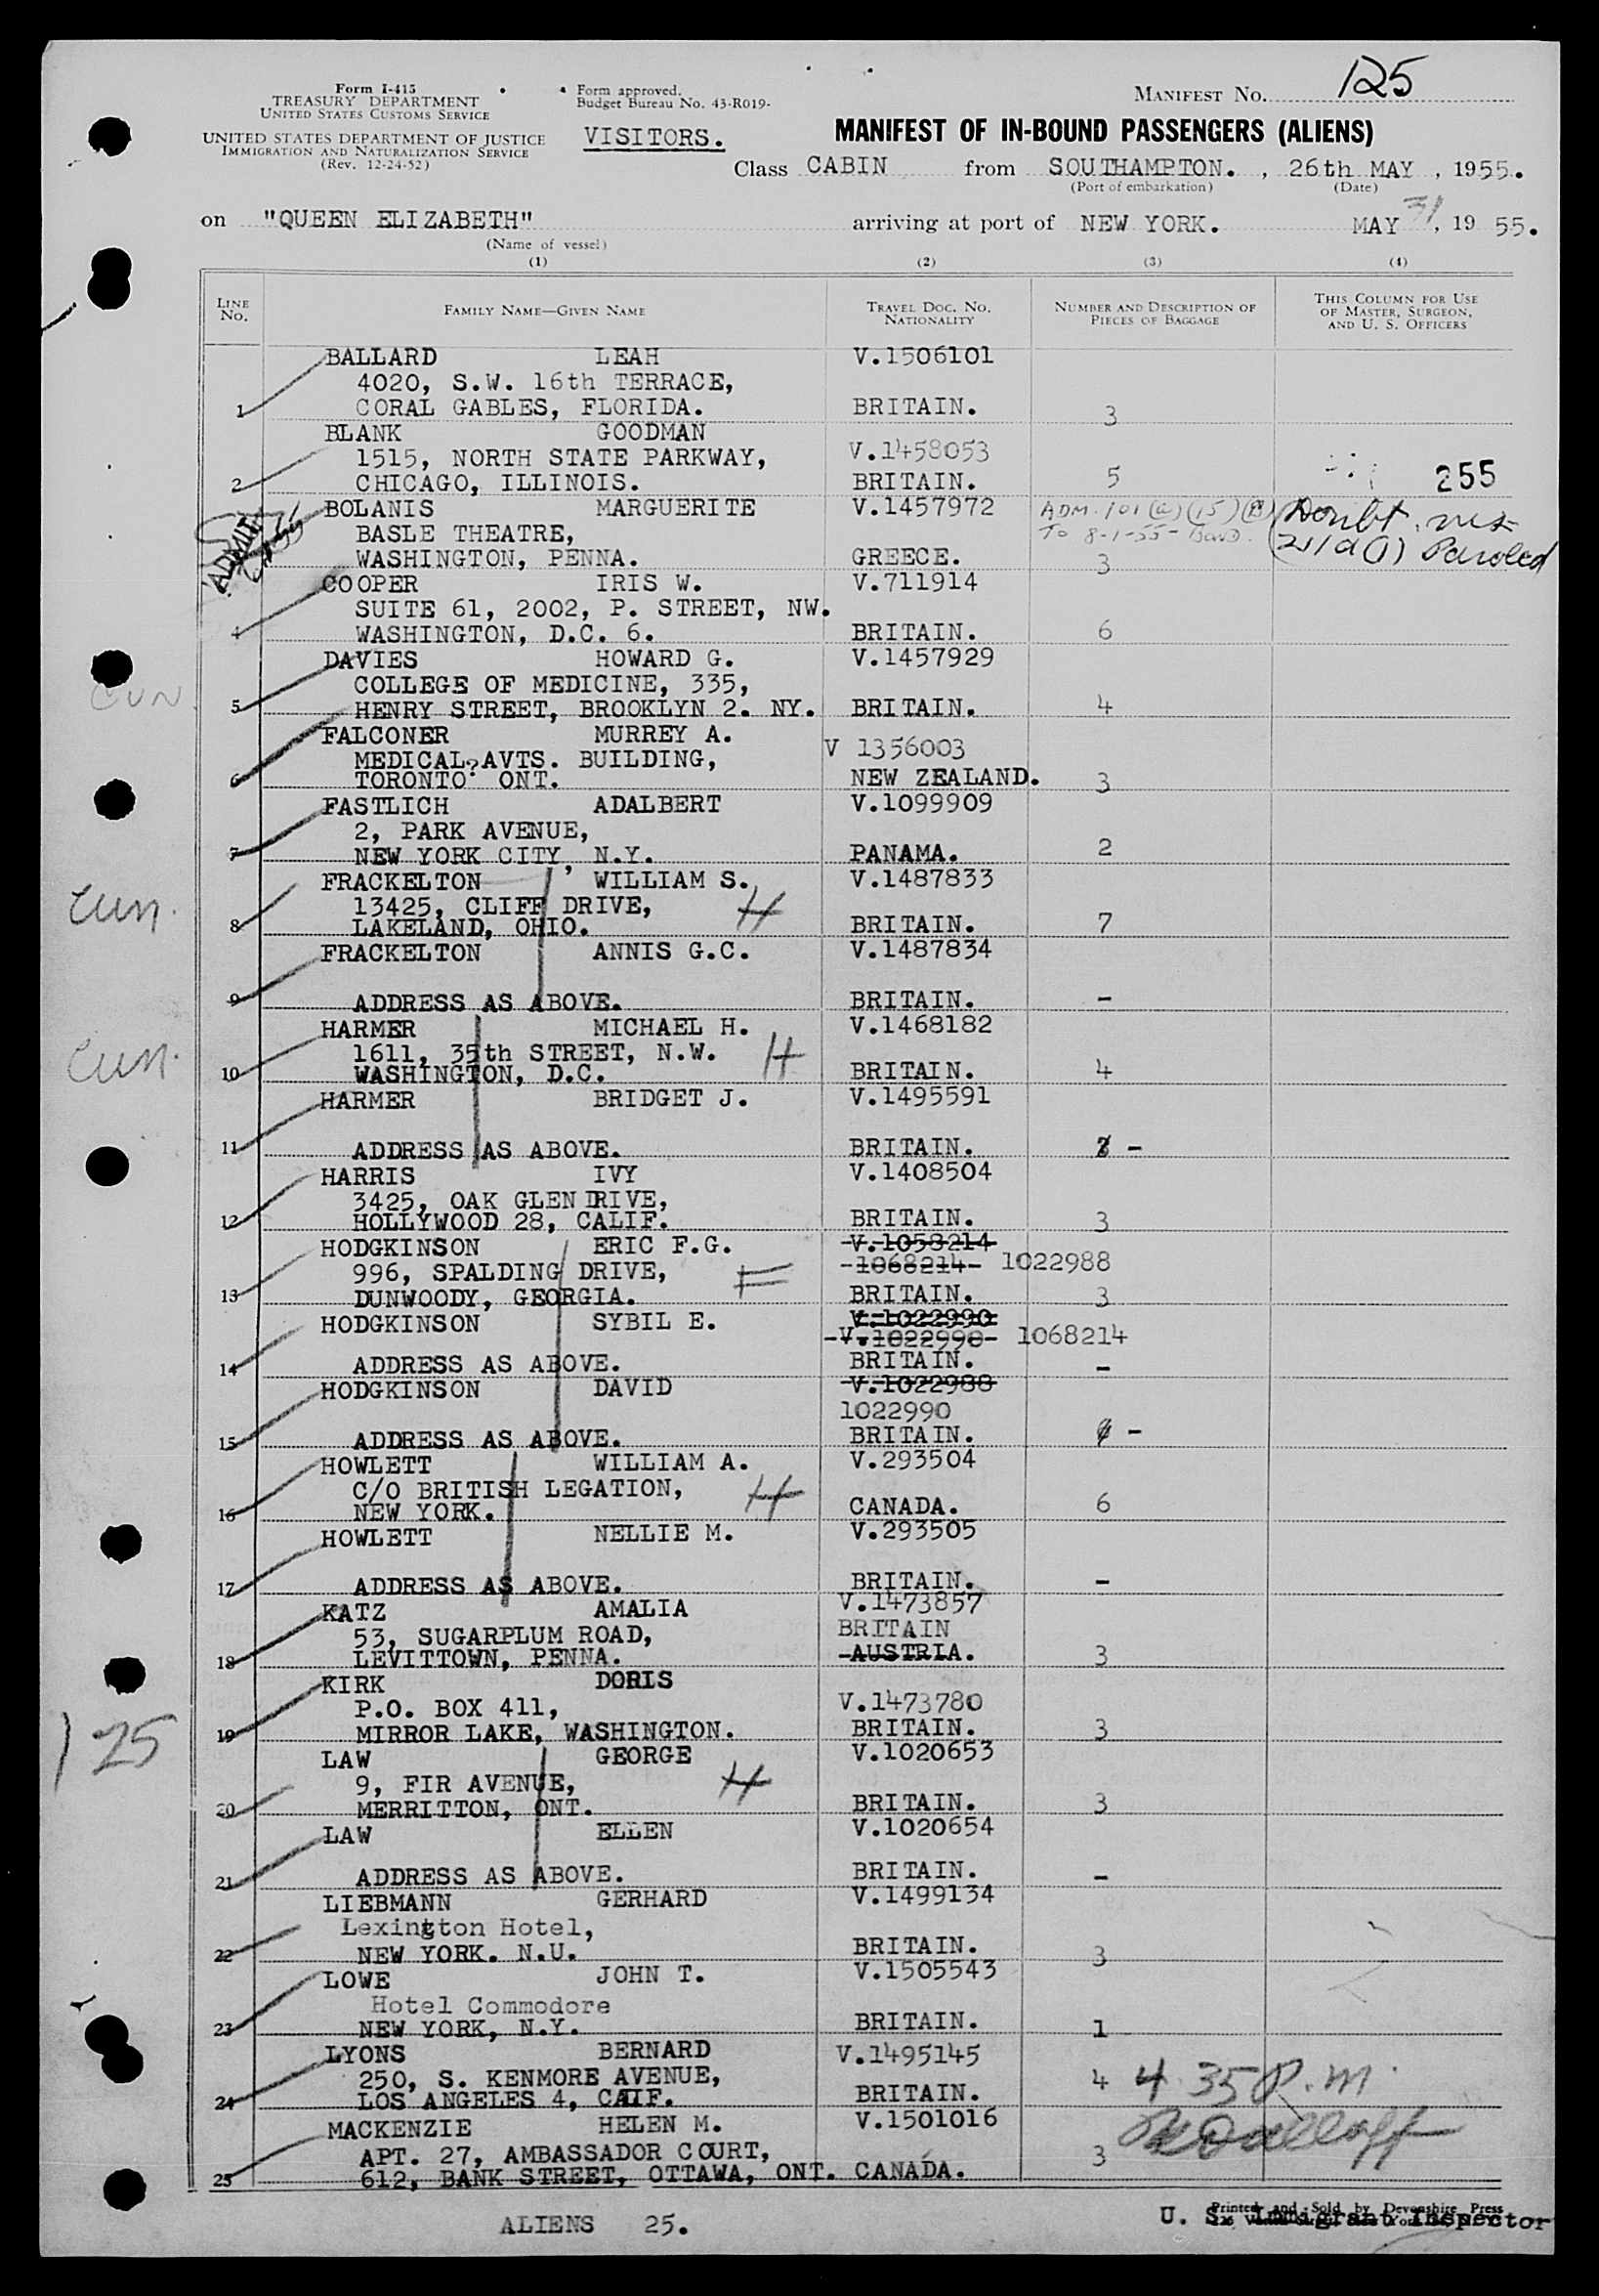 Form I-415
TREASURY DEPARTMENT
UNITED STATES CUSTOMS SERVICE
UNITED STATES DEPARTMENT OF JUSTICE
IMMIGRATION AND NATURALIZATION SERVICE
(Rev. 12-24-52)
Form approved.
Budget Bureau No. 43-R019-
VISITORS.
MANIFEST NO. 125
MANIFEST OF IN-BOUND PASSENGERS (ALIENS)
Class CABIN from SOUTHAMPTON. , 26th MAY , 1955.
(Port of embarkation) (Date)
on "QUEEN ELIZABETH" arriving at port of NEW YORK. MAY 31, 19 55.
(Name of vessel)
(1) (2) (3) (4)
LINE NO. FAMILY NAME—GIVEN NAME TRAVEL DOC. NO. NATIONALITY NUMBER AND DESCRIPTION OF PIECES OF BAGGAGE THIS COLUMN FOR USE OF MASTER, SURGEON, AND U. S. OFFICERS
BALLARD LEAH V.1506101
4020, S.W. 16th TERRACE,
1 CORAL GABLES, FLORIDA. BRITAIN. 3
BLANK GOODMAN
1515, NORTH STATE PARKWAY, V.1458053
2 CHICAGO, ILLINOIS. BRITAIN. 5 255
BOLANIS MARGUERITE V.1457972 ADM. 101 (a) (15) (B) Doubt.
ADMIT BASLE THEATRE, To 8-1-55 - Bond. 21/d (1) Paroled
WASHINGTON, PENNA. GREECE. 3
COOPER IRIS W. V.711914
SUITE 61, 2002, P. STREET, NW.
4 WASHINGTON, D.C. 6. BRITAIN. 6
DAVIES HOWARD G. V.1457929
COLLEGE OF MEDICINE, 335,
CUN. 5 HENRY STREET, BROOKLYN 2. NY. BRITAIN. 4
FALCONER MURREY A. V 1356003
MEDICAL?AVTS. BUILDING,
6 TORONTO ONT. NEW ZEALAND. 3
FASTLICH ADALBERT V.1099909
2, PARK AVENUE,
7 NEW YORK CITY, N.Y. PANAMA. 2
FRACKELTON WILLIAM S. V.1487833
cun. 13425, CLIFF DRIVE, H
8 LAKELAND, OHIO. BRITAIN. 7
FRACKELTON ANNIS G.C. V.1487834
9 ADDRESS AS ABOVE. BRITAIN. -
HARMER MICHAEL H. V.1468182
cun. 1611, 35th STREET, N.W. H
10 WASHINGTON, D.C. BRITAIN. 4
HARMER BRIDGET J. V.1495591
11 ADDRESS AS ABOVE. BRITAIN. -
HARRIS IVY V.1408504
3425, OAK GLEN DRIVE,
12 HOLLYWOOD 28, CALIF. BRITAIN. 3
HODGKINSON ERIC F.G. V.1058214
996, SPALDING DRIVE, F -1068214- 1022988
13 DUNWOODY, GEORGIA. BRITAIN. 3
HODGKINSON SYBIL E. V.1022990
-V.1022990- 1068214
14 ADDRESS AS ABOVE. BRITAIN. -
HODGKINSON DAVID V.1022988
1022990
15 ADDRESS AS ABOVE. BRITAIN. -
HOWLETT WILLIAM A. V.293504
C/O BRITISH LEGATION, H
16 NEW YORK. CANADA. 6
HOWLETT NELLIE M. V.293505
17 ADDRESS AS ABOVE. BRITAIN. -
KATZ AMALIA V.1473857
53, SUGARPLUM ROAD, BRITAIN
18 LEVITTOWN, PENNA. AUSTRIA. 3
KIRK DORIS
P.O. BOX 411, V.1473780
125 19 MIRROR LAKE, WASHINGTON. BRITAIN. 3
LAW GEORGE V.1020653
9, FIR AVENUE, H
20 MERRITTON, ONT. BRITAIN. 3
LAW ELLEN V.1020654
21 ADDRESS AS ABOVE. BRITAIN. -
LIEBMANN GERHARD V.1499134
Lexington Hotel,
22 NEW YORK. N.U. BRITAIN. 3
LOWE JOHN T. V.1505543
Hotel Commodore
23 NEW YORK, N.Y. BRITAIN. 1
LYONS BERNARD V.1495145
250, S. KENMORE AVENUE, 4 4 35 P.m.
24 LOS ANGELES 4, CALIF. BRITAIN.
MACKENZIE HELEN M. V.1501016
APT. 27, AMBASSADOR COURT, 3
25 612, BANK STREET, OTTAWA, ONT. CANADA.
ALIENS 25.
Printed and Sold by Devonshire Press
U. S. Immigrant Inspector